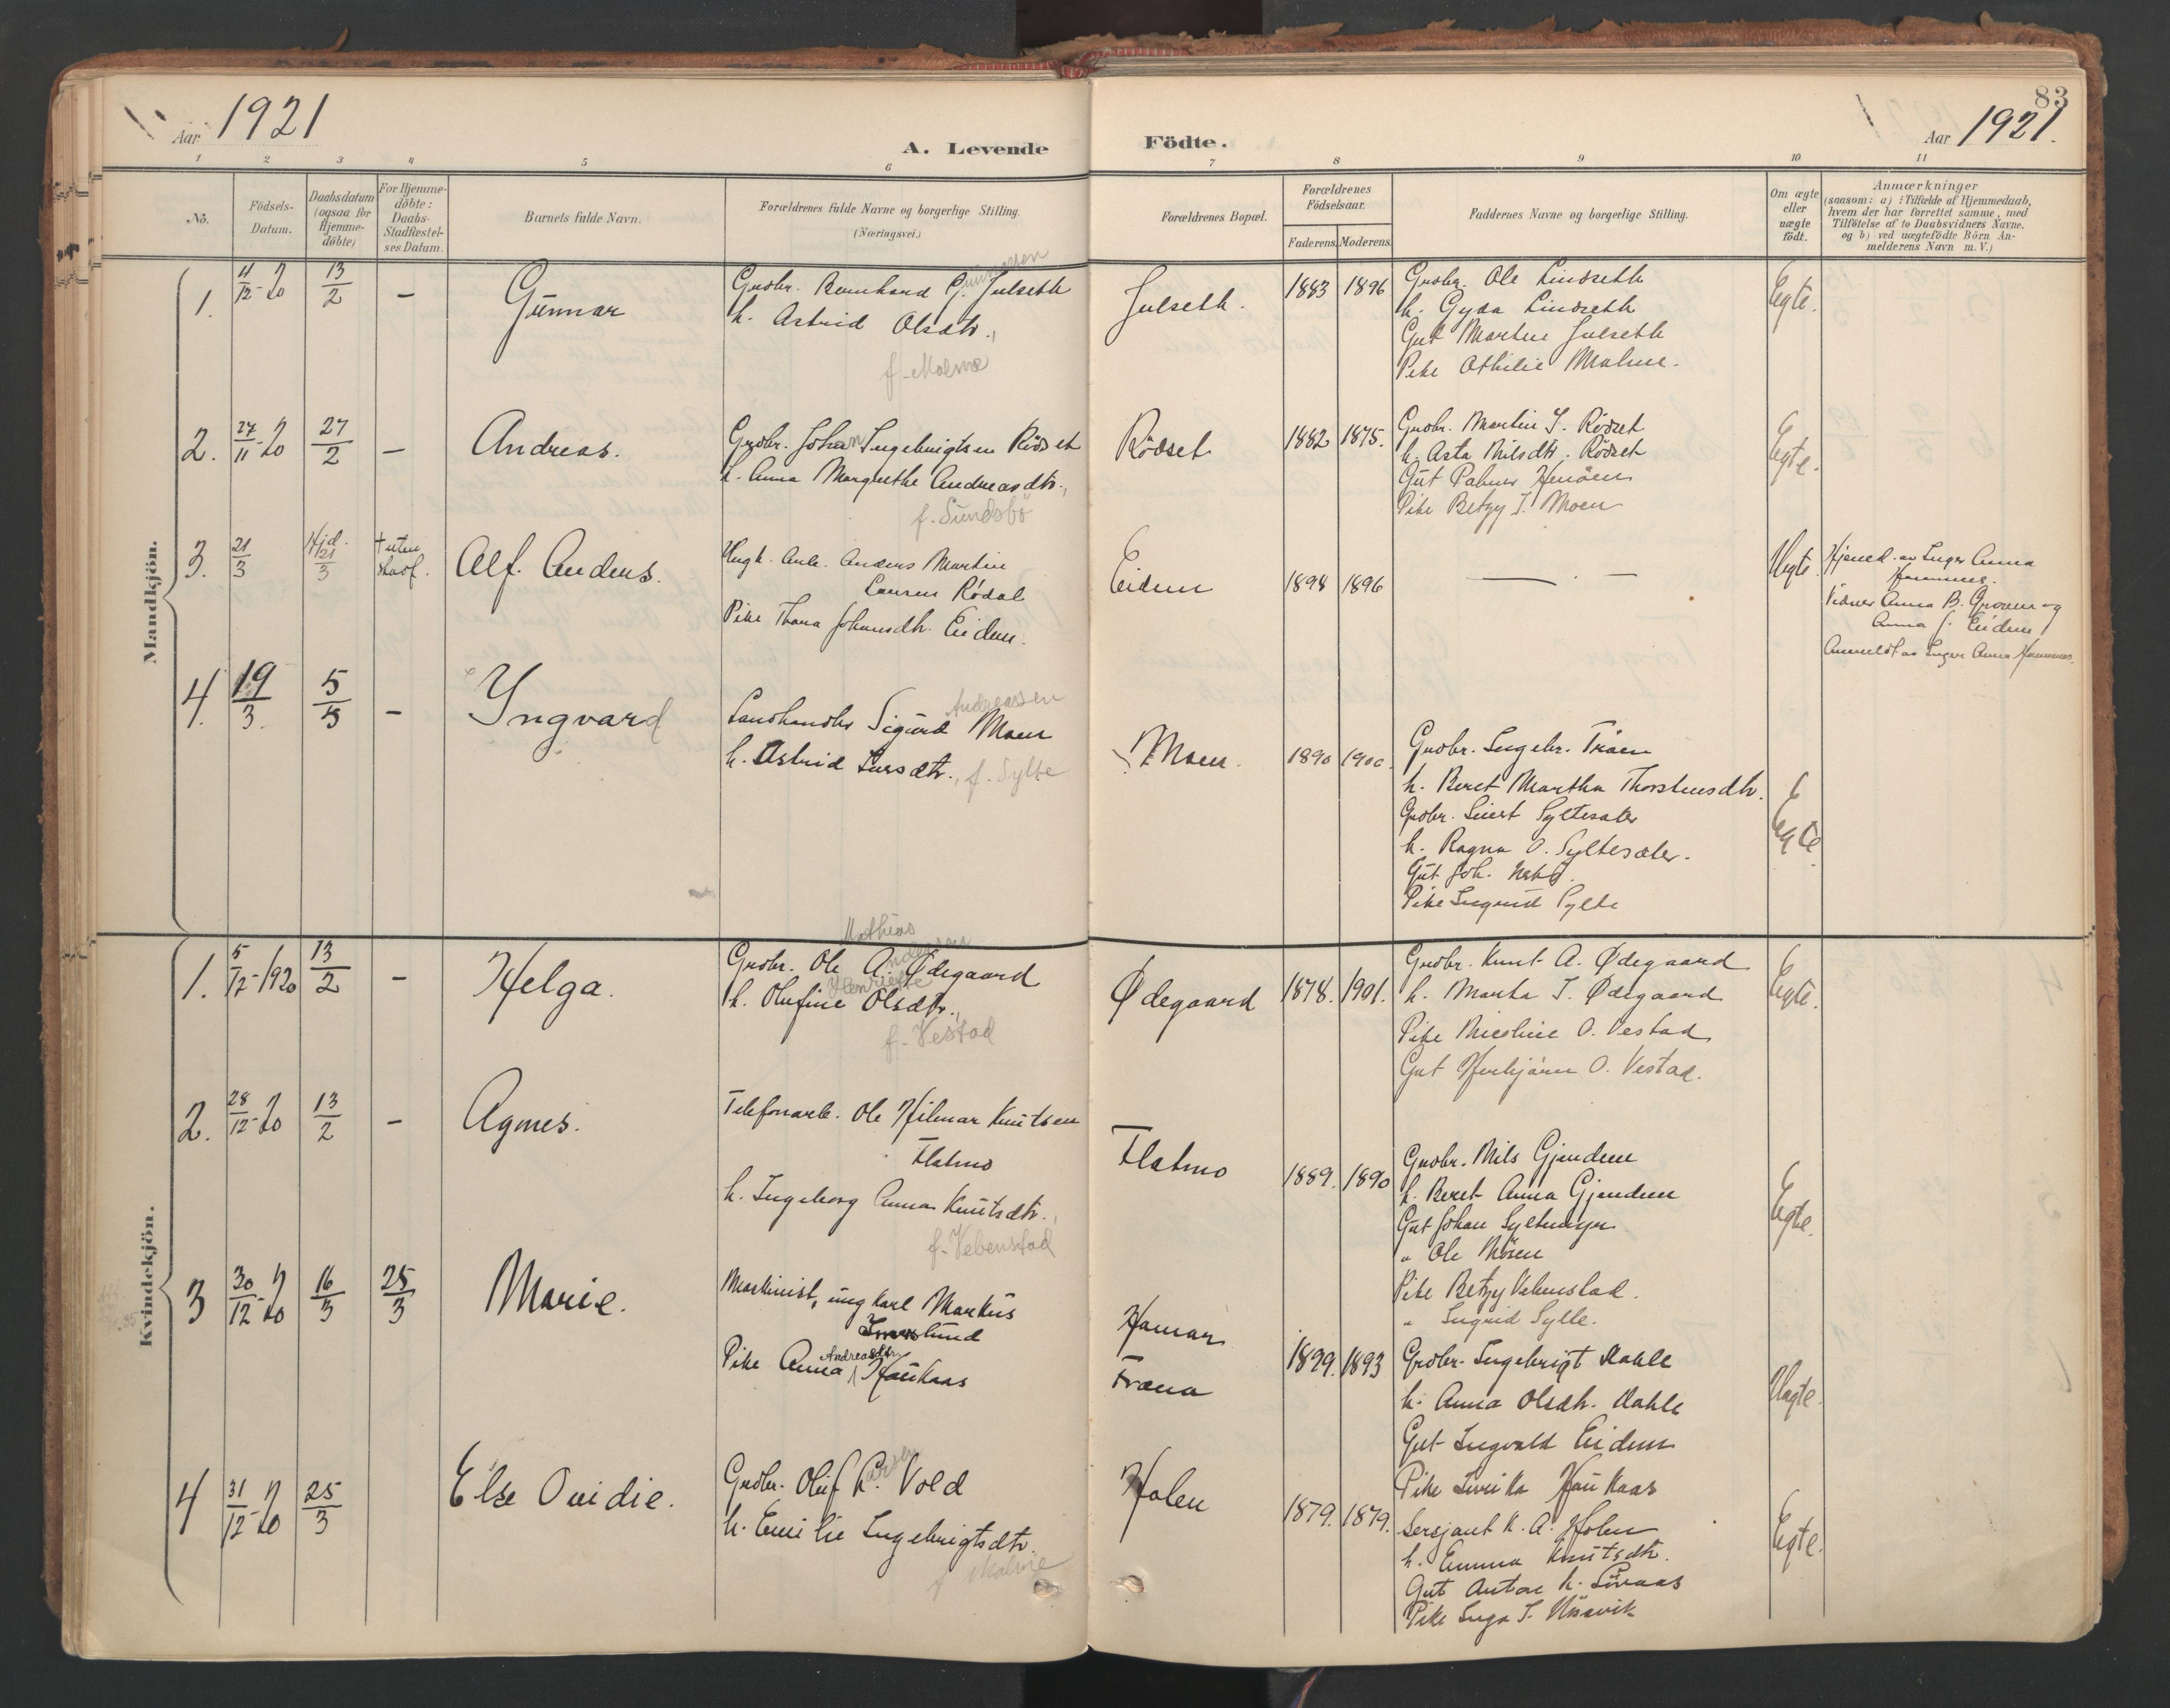 83
Aar 1921
A. Levende
Födte.
Aar 1921.
1 2 3 4 5 6 7 8 9 10 11
No.
Födsels-
Datum.
Daabsdatum
(ogsaa for
Hjemme-
döbte)
For Hjemme-
döbte:
Daabs-
Stadfæstel-
ses Datum.
Barnets fulde Navn.
Forældrenes fulde Navne og borgerlige Stilling.
(Næringsvei.)
Forældrenes Bopæl.
Forældrenes
Födselsaar.
Faderens. Moderens.
Faddernes Navne og borgerlige Stilling.
Om ægte
eller
uægte
födt.
Anmærkninger
(saasom: a) i Tilfælde af Hjemmedaab,
hvem der har forrettet samme, med
Tilföielse af to Daabsvidners Navne,
og b) ved uægtefödte Börn An-
melderens Navn m. V.)
Mandkjön.
1. 4/12-20 13/2 — Gunnar
Grdbr. Bernhard G. Julseth
h. Astrid Olsdtr.,
f. Malme
Julseth. 1883 1896
Grdbr. Ole Lindseth
h. Gyda Lindseth
Gut Martin Julseth
Pike Othilie Malme.
Egte.
2. 27/11-20 27/2 — Andreas.
Grdbr. Johan Ingebrigtsen Rödset
h. Anna Margrethe Andreasdtr.,
f. Sundsbö
Rödset 1882 1875.
Grdbr. Martin I. Rödset
h. Asta Nilsdtr. Rödset
Gut Palmer Henöen
Pike Betzy I. Moen
Egte.
3. 21/3 Hjd. 21/3 † uten stadf. Alf Anders.
Ungk. Arb. Anders Martin
Laursen Rödal
Pike Thora Johansdtr. Eidem.
Eidem 1898 1896
— —
Uegte
Hjemd. av Inger Anna
Hammes.
Vidner Anna B. Groven og
Anna J. Eidem
Anmeldt av Inger Anna Hammes.
4. 19/3 5/5 — Yngvard
Andreassen
Landhandler Sigurd Moen
h. Astrid Larsdtr., f. Sylte
Moen. 1890 1900.
Grdbr. Ingebr. Tråen
h. Beret Martha Thorstensdtr.
Grdbr. Sivert Syltesæter
h. Ragna O. Syltesæter.
Gut Joh.
Pike Ingrid Sylte
Egte
Kvindekjön.
1. 5/12-1920 13/2 — Helga.
Mathias
Andersen
Grdbr. Ole A. Ødegaard
Henriette
h. Olufine Olsdtr.,
f. Vestad
Ødegaard 1878. 1901.
Grdbr. Knut A. Ødegaard
h. Marta I. Ødegaard
Pike Nicoline O. Vestad
Gut O. Vestad.
Egte.
2. 28/12-20 13/2 — Agnes.
Telefonarb. Ole Hilmar Knutsen
Flatmo
h. Ingeborg Anna Knutsdtr.,
f. Vebenstad
Flatmo 1889. 1890
Grdbr. Nils Gjendem
h. Beret Anna Gjendem
Gut Johan Syltmyr
" Ole Moen
Pike Betzy Vebenstad.
" Ingrid Sylte.
Egte.
3 30/12-20 16/3 25/3 Marie.
Maskinist, ung Karl Markus
lund
Andreasdtr.
Pike Anna Haukaas
Hamar
Fræna
1899. 1893
Grdbr. Ingebrigt Dahle
h. Anna Olsdtr. Dahle
Gut Ingvald Eidem
Pike Haukaas
Uegte.
4 31/12-20 25/3 Else Ovidie.
Larsen
Grdbr. Oluf L. Vold
h. Emilie Ingebrigtsdtr.
f. Malme
Holen 1879. 1879.
Sersjant K. A. Holen
h. Emma Knutsdtr.
Gut Anton K.
Pike Inga I.
Egte.